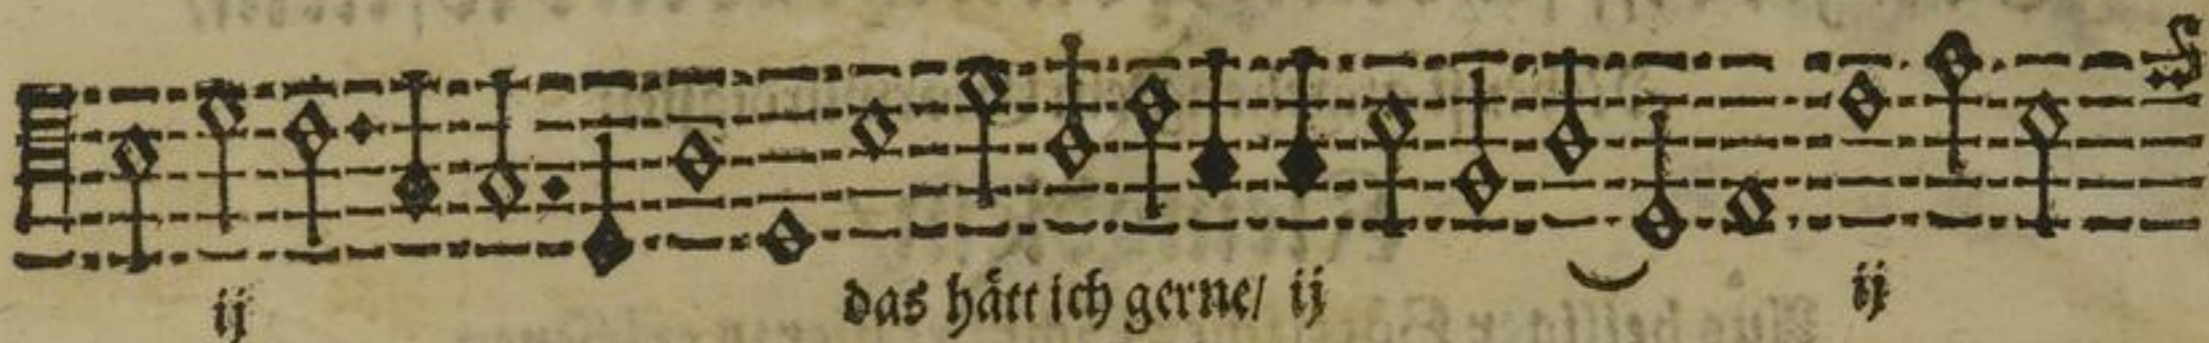 ij das hätt ich gerne/ ij ij